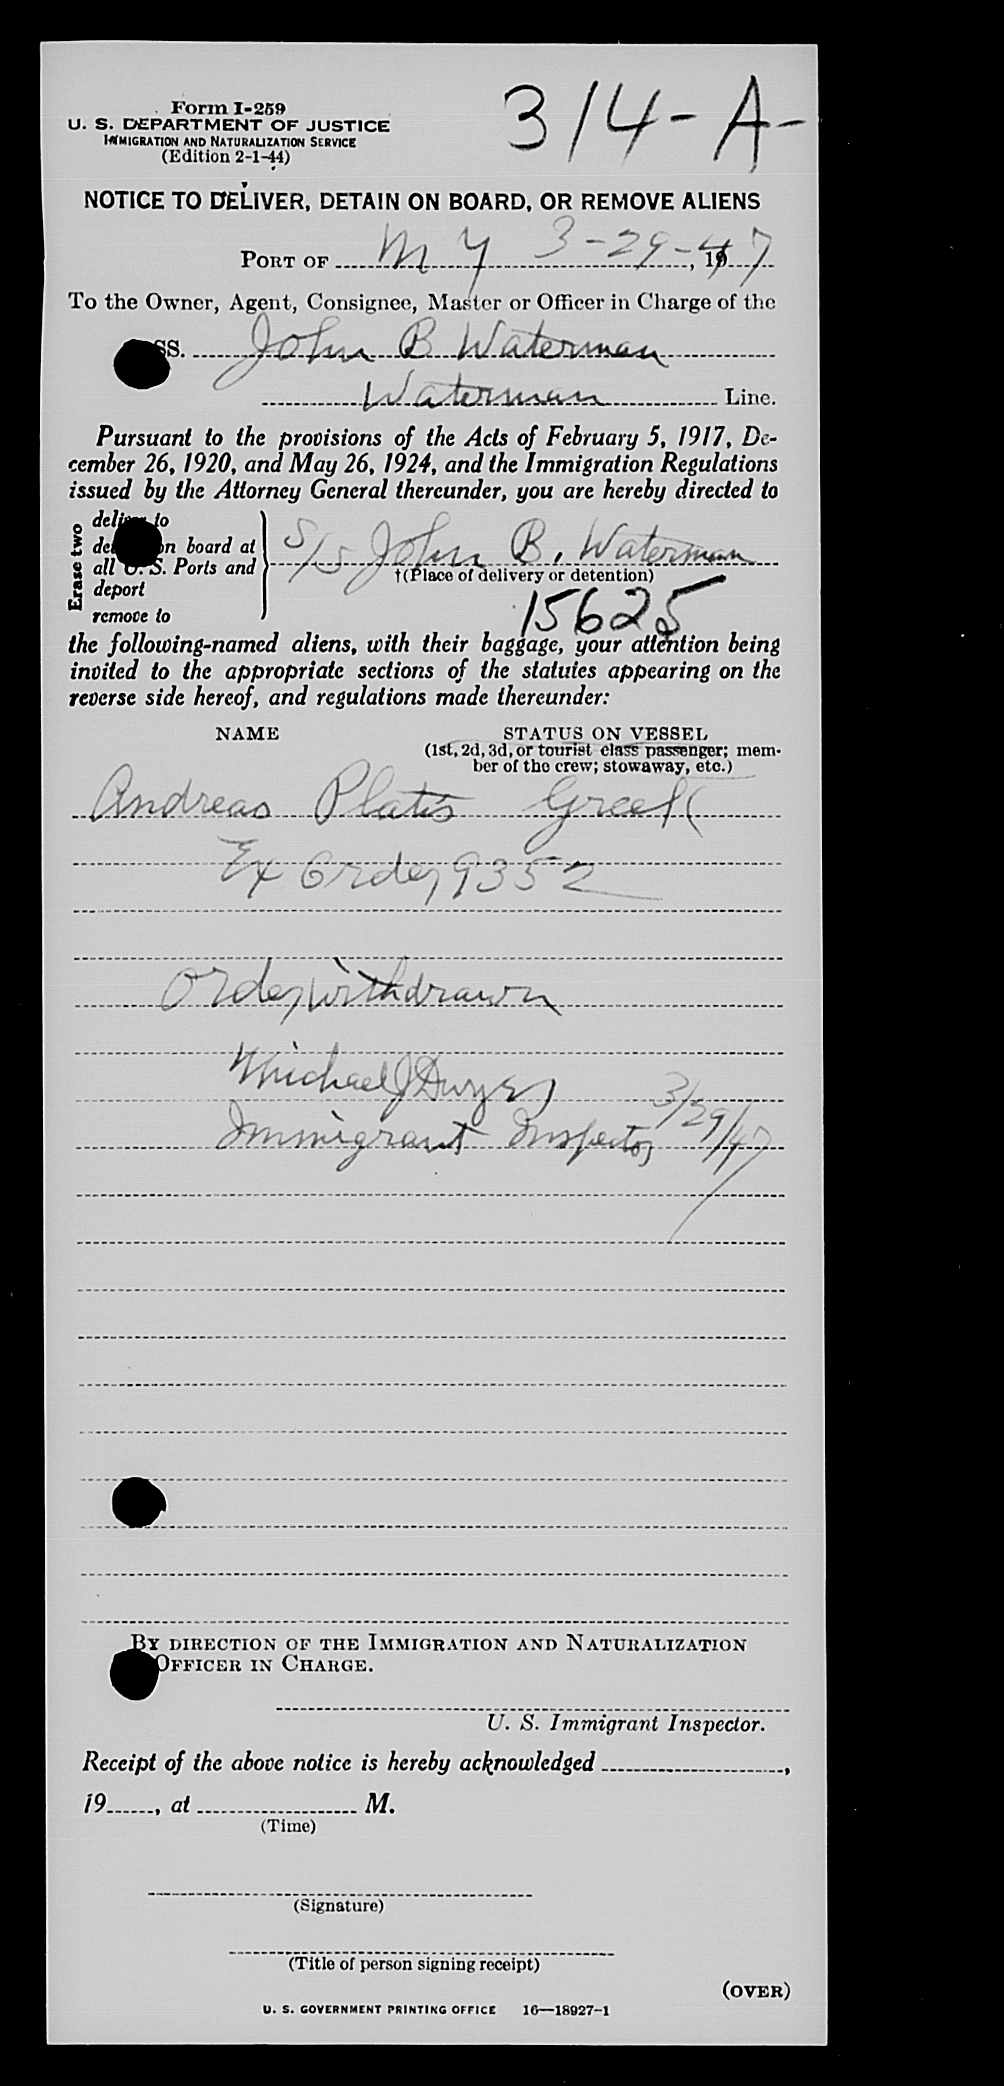 Form I-259
U. S. DEPARTMENT OF JUSTICE
IMMIGRATION AND NATURALIZATION SERVICE
(Edition 2-1-44)
314-A-
NOTICE TO DELIVER, DETAIN ON BOARD, OR REMOVE ALIENS
PORT OF N Y 3-29-47, 19
To the Owner, Agent, Consignee, Master or Officer in Charge of the
SS. John B Waterman
Waterman Line.
Pursuant to the provisions of the Acts of February 5, 1917, De-
cember 26, 1920, and May 26, 1924, and the Immigration Regulations
issued by the Attorney General thereunder, you are hereby directed to
Erase two
deliver to
on board at
all U. S. Ports and
deport
remove to
S/S John B. Waterman
†(Place of delivery or detention)
15625
the following-named aliens, with their baggage, your attention being
invited to the appropriate sections of the statutes appearing on the
reverse side hereof, and regulations made thereunder:
NAME STATUS ON VESSEL
(1st, 2d, 3d, or tourist class passenger; mem-
ber of the crew; stowaway, etc.)
Andreas Platis Greek
Ex Order 9352
Order withdrawn
Michael J Dwyer
Immigrant Inspector 3/29/47
BY DIRECTION OF THE IMMIGRATION AND NATURALIZATION
OFFICER IN CHARGE.
U. S. Immigrant Inspector.
Receipt of the above notice is hereby acknowledged ,
19 , at M.
(Time)
(Signature)
(Title of person signing receipt)
(OVER)
U. S. GOVERNMENT PRINTING OFFICE 16—18927-1